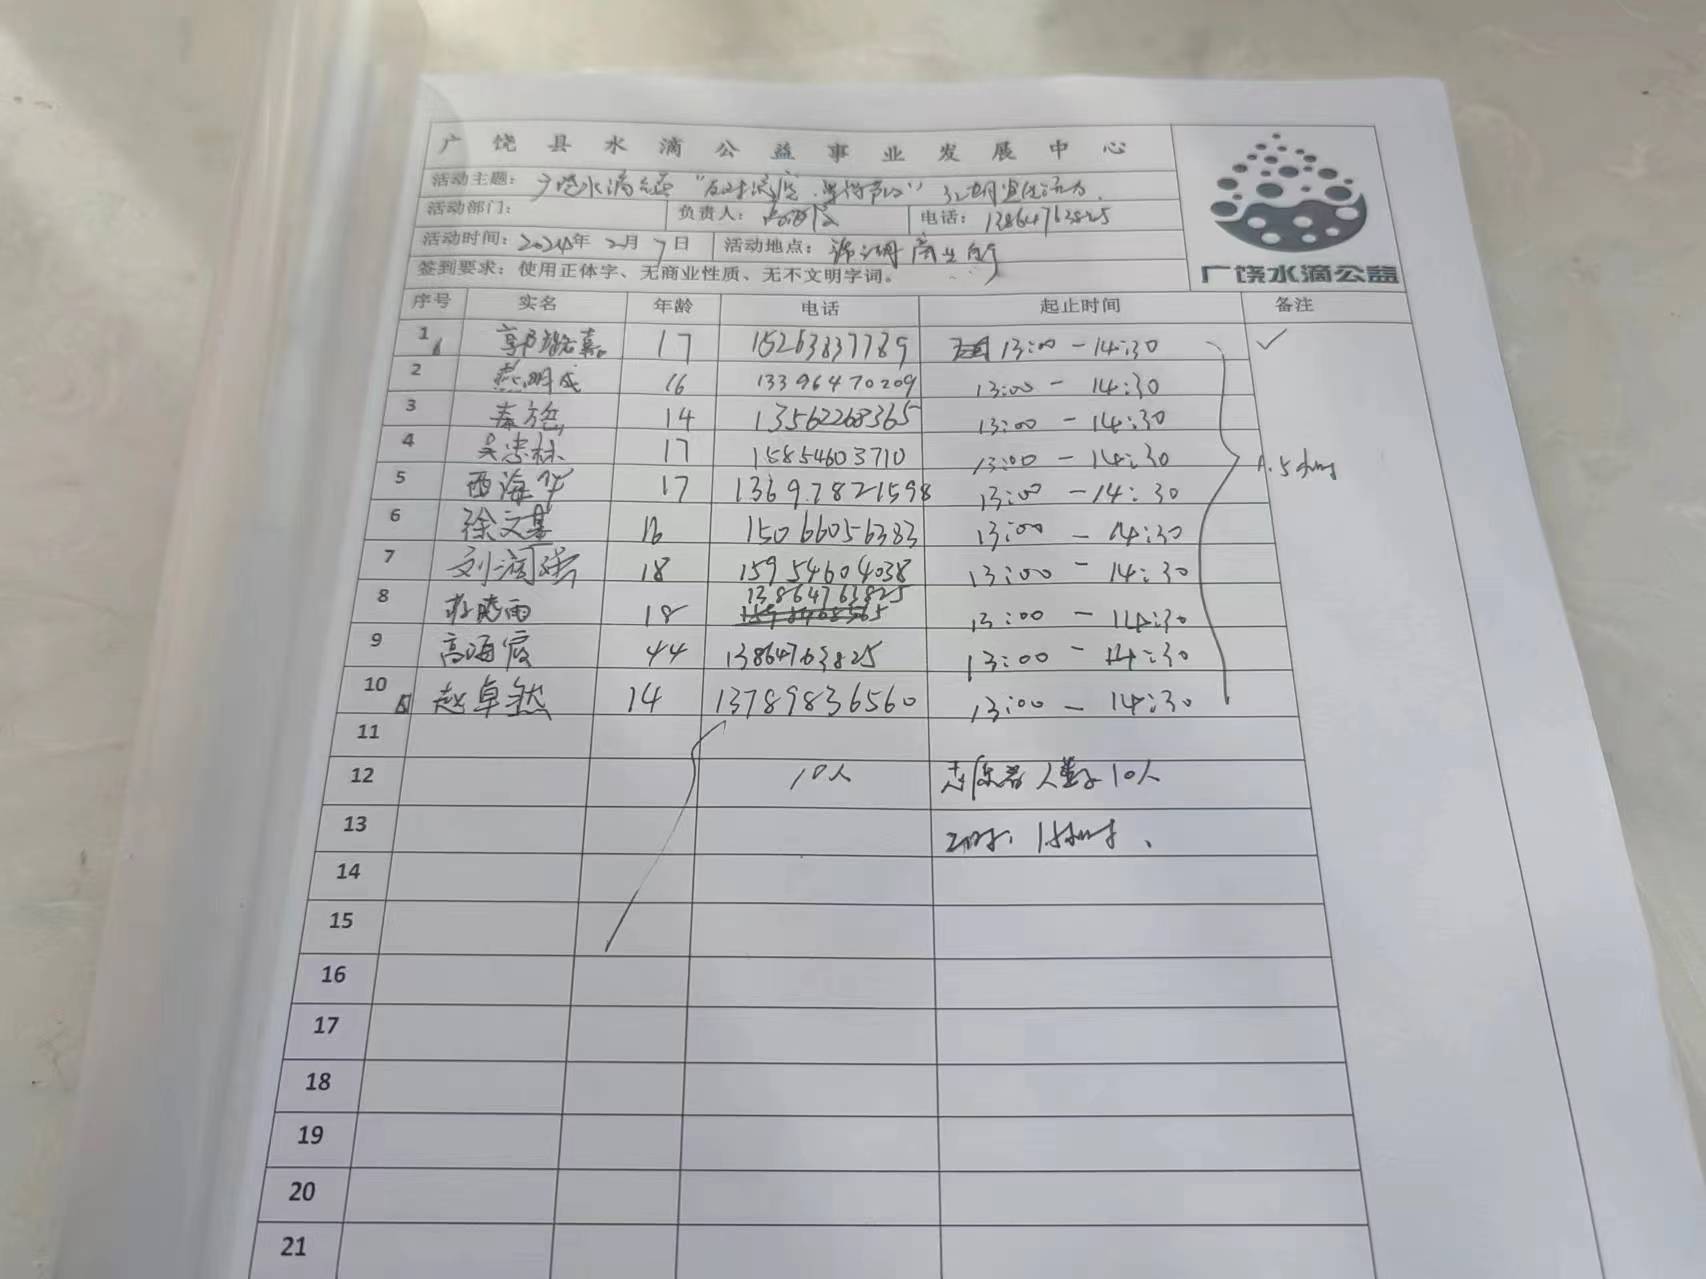 广饶县水滴公益事业发展中心
活动主题：广饶水滴公益"反对浪费、坚持节约"
活动部门： 负责人：高海霞 电话：13864763825
活动时间：2024年2月7日 活动地点：
签到要求：使用正体字、无商业性质、无不文明字词。
广饶水滴公益
序号 实名 年龄 电话 起止时间 备注
1 17 15263837789 13:00 - 14:30 ✓
2 燕明成 16 13396470209 13:00 - 14:30
3 秦 14 13562268365 13:00 - 14:30
4 吴忠林 17 15854603710 13:00 - 14:30
5 西海华 17 13697821598 13:00 - 14:30
6 徐文基 16 15066056383 13:00 - 14:30
7 刘润 18 15954604038 13:00 - 14:30
8 18 13864763825 13:00 - 14:30
9 高海霞 44 13864763825 13:00 - 14:30
10 赵卓然 14 13789836560 13:00 - 14:30
11
12 10人 志愿者人数：10人
13
14
15
16
17
18
19
20
21